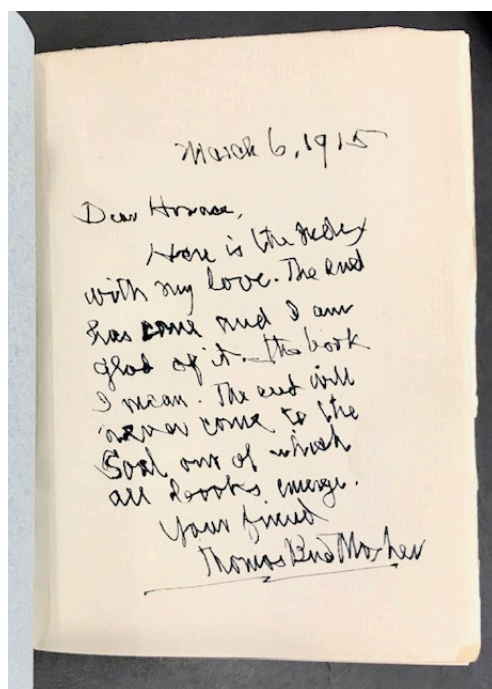 March 6, 1915
Dear Horace,
Here is the Index
with my love. The end
has come and I am
glad of it—the book
I mean. The end will
never come to the
Soul out of which
all books emerge.
Your friend
Thomas Bird Mosher